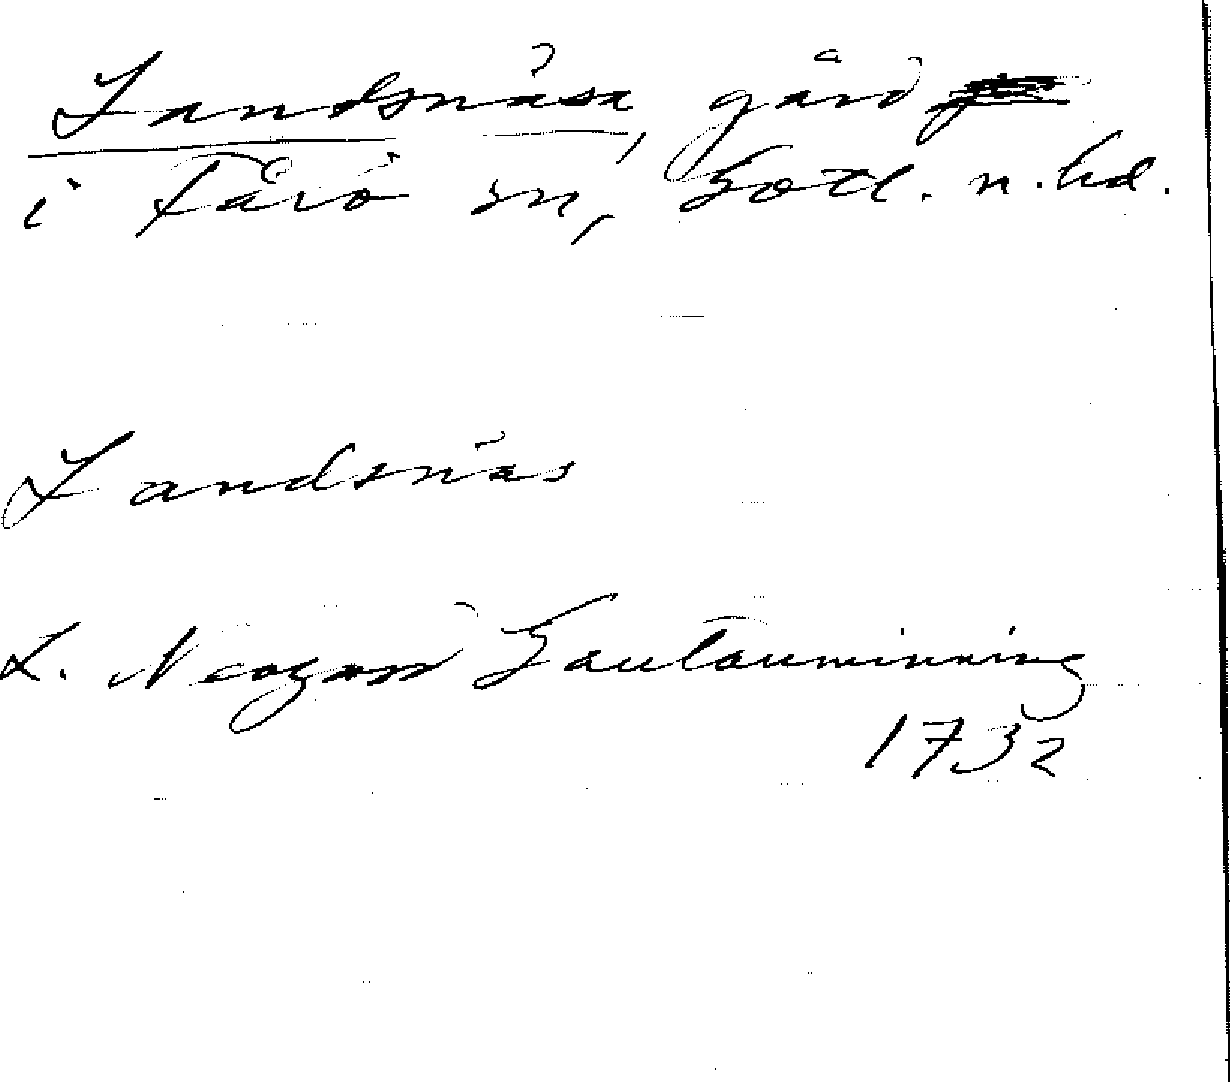 Landsnäsa, gård
i Fårö sn, Gotl. n. hd.
Landsnäs
L. Neogard Gautauminning
1732